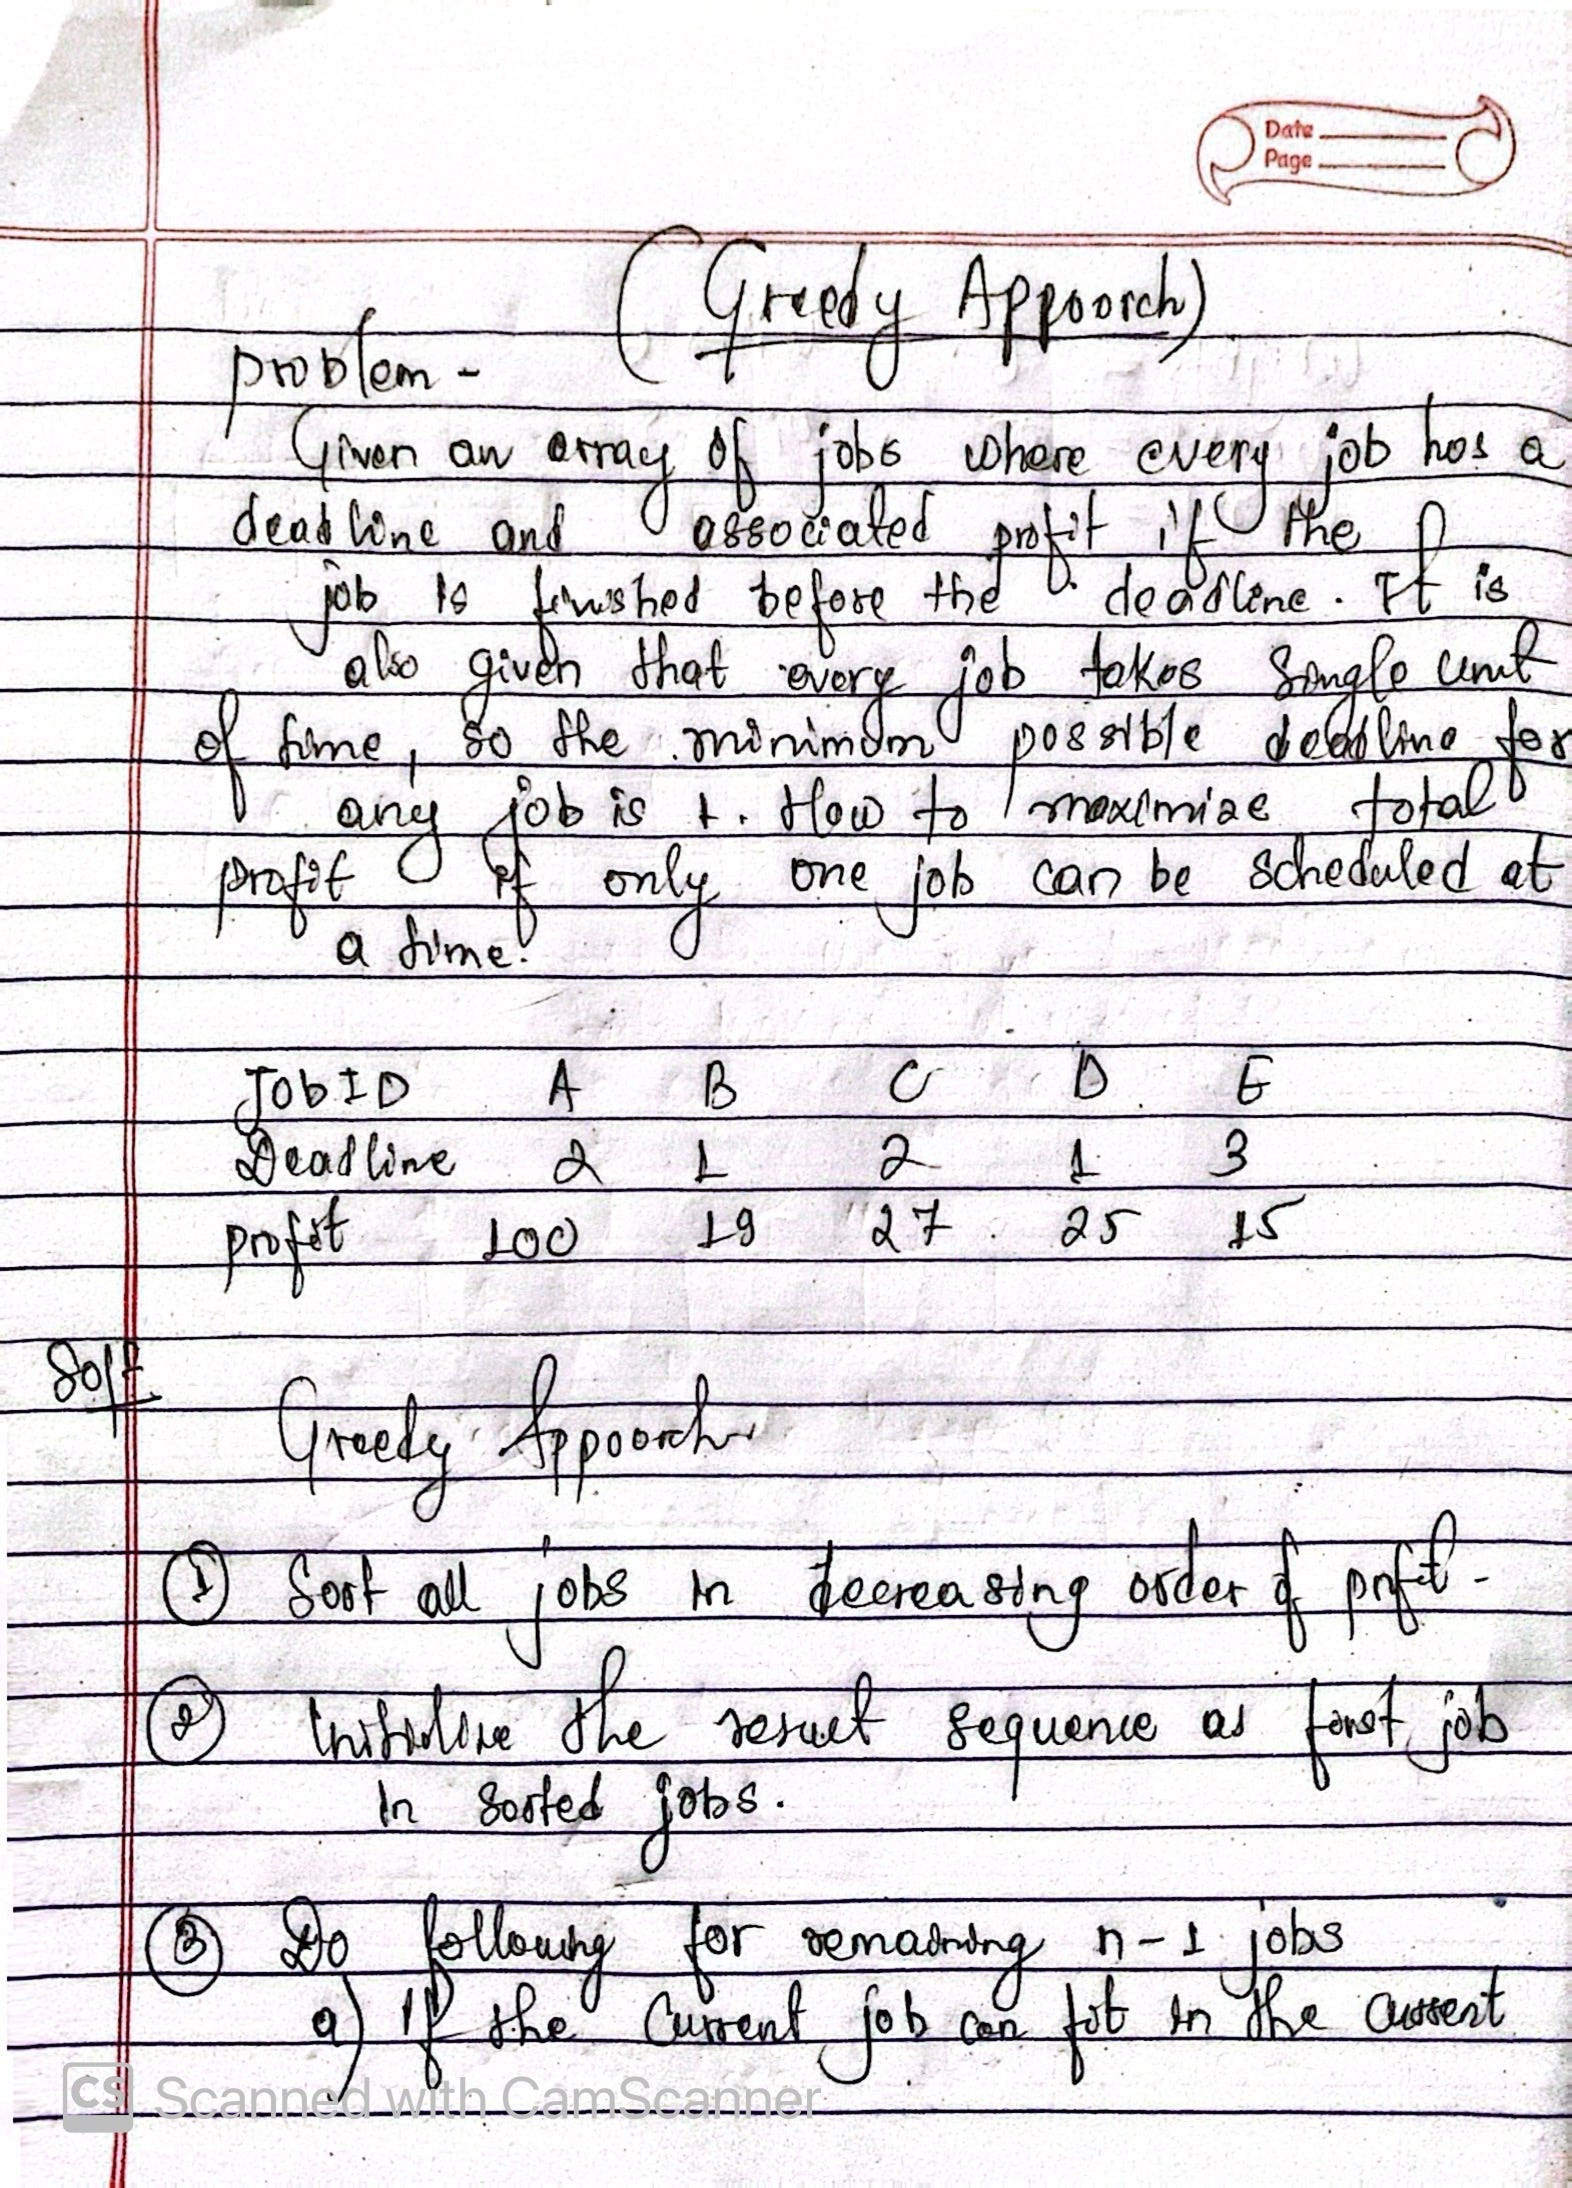 Date
Page
(Greedy Appoorch)
problem -
Given an array of jobs where every job has a
deadline and associated profit if the
job is finished before the deadline. It is
also given that every job takes single unit
of time, so the minimum possible deadline for
any job is 1. How to maximize total
profit if only one job can be scheduled at
a time.
JobID A B C D E
Deadline 2 1 2 1 3
profit 100 19 27 25 15
Soln
Greedy Appoorch
① Sort all jobs in decreasing order of profit.
② Initialize the result sequence as first job
in sorted jobs.
③ Do following for remaining n-1 jobs
a) If the current job can fit in the current
CS Scanned with CamScanner